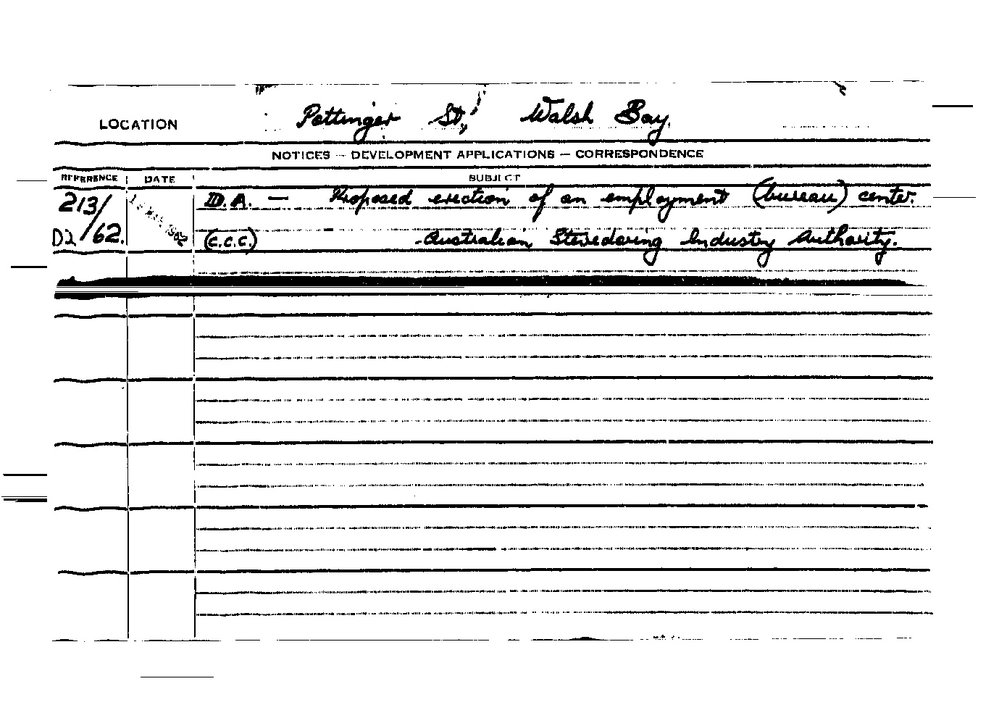 LOCATION Pottinger St, Walsh Bay.
NOTICES — DEVELOPMENT APPLICATIONS — CORRESPONDENCE
REFERENCE DATE SUBJECT
213/ D.A. — Proposed erection of an employment (bureau) center.
D2/62. (C.C.C.) - Australian Stevedoring Industry Authority.